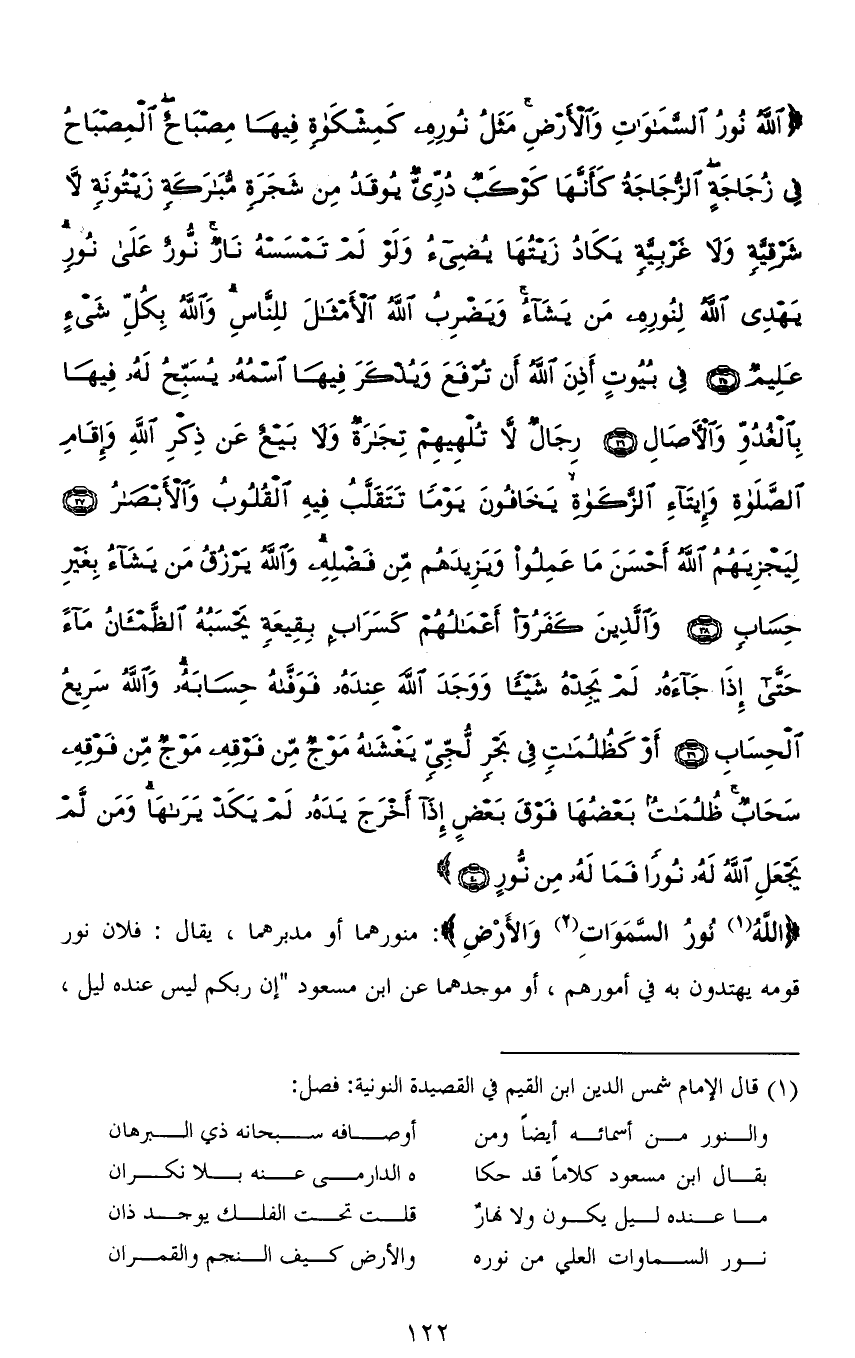 ﴿ٱللَّهُ نُورُ ٱلسَّمَٰوَٰتِ وَٱلْأَرْضِۚ مَثَلُ نُورِهِۦ كَمِشْكَوٰةٍ فِيهَا مِصْبَاحٌۖ ٱلْمِصْبَاحُ
فِى زُجَاجَةٍۖ ٱلزُّجَاجَةُ كَأَنَّهَا كَوْكَبٌ دُرِّىٌّ يُوقَدُ مِن شَجَرَةٍ مُّبَٰرَكَةٍ زَيْتُونَةٍ لَّا
شَرْقِيَّةٍ وَلَا غَرْبِيَّةٍ يَكَادُ زَيْتُهَا يُضِىٓءُ وَلَوْ لَمْ تَمْسَسْهُ نَارٌۚ نُّورٌ عَلَىٰ نُورٍۗ
يَهْدِى ٱللَّهُ لِنُورِهِۦ مَن يَشَآءُۚ وَيَضْرِبُ ٱللَّهُ ٱلْأَمْثَٰلَ لِلنَّاسِۗ وَٱللَّهُ بِكُلِّ شَىْءٍ
عَلِيمٌ ٣٥ فِى بُيُوتٍ أَذِنَ ٱللَّهُ أَن تُرْفَعَ وَيُذْكَرَ فِيهَا ٱسْمُهُۥ يُسَبِّحُ لَهُۥ فِيهَا
بِٱلْغُدُوِّ وَٱلْأَصَالِ ٣٦ رِجَالٌ لَّا تُلْهِيهِمْ تِجَٰرَةٌ وَلَا بَيْعٌ عَن ذِكْرِ ٱللَّهِ وَإِقَامِ
ٱلصَّلَوٰةِ وَإِيتَآءِ ٱلزَّكَوٰةِۙ يَخَافُونَ يَوْمًا تَتَقَلَّبُ فِيهِ ٱلْقُلُوبُ وَٱلْأَبْصَٰرُ ٣٧
لِيَجْزِيَهُمُ ٱللَّهُ أَحْسَنَ مَا عَمِلُوا۟ وَيَزِيدَهُم مِّن فَضْلِهِۦۗ وَٱللَّهُ يَرْزُقُ مَن يَشَآءُ بِغَيْرِ
حِسَابٍ ٣٨ وَٱلَّذِينَ كَفَرُوٓا۟ أَعْمَٰلُهُمْ كَسَرَابٍۭ بِقِيعَةٍ يَحْسَبُهُ ٱلظَّمْـَٔانُ مَآءً
حَتَّىٰٓ إِذَا جَآءَهُۥ لَمْ يَجِدْهُ شَيْـًٔا وَوَجَدَ ٱللَّهَ عِندَهُۥ فَوَفَّىٰهُ حِسَابَهُۥۗ وَٱللَّهُ سَرِيعُ
ٱلْحِسَابِ ٣٩ أَوْ كَظُلُمَٰتٍ فِى بَحْرٍ لُّجِّىٍّ يَغْشَىٰهُ مَوْجٌ مِّن فَوْقِهِۦ مَوْجٌ مِّن فَوْقِهِۦ
سَحَابٌۚ ظُلُمَٰتٌۢ بَعْضُهَا فَوْقَ بَعْضٍ إِذَآ أَخْرَجَ يَدَهُۥ لَمْ يَكَدْ يَرَىٰهَاۗ وَمَن لَّمْ
يَجْعَلِ ٱللَّهُ لَهُۥ نُورًا فَمَا لَهُۥ مِن نُّورٍ ٤٠﴾
﴿اللَّهُ(١) نُورُ السَّمَوَاتِ(٢) وَالأَرْضِ﴾: منورهما أو مدبرهما ، يقال : فلان نور
قومه يهتدون به في أمورهم ، أو موجدهما عن ابن مسعود "إن ربكم ليس عنده ليل ،
(١) قال الإمام شمس الدين ابن القيم في القصيدة النونية: فصل:
والنور من أسمائه أيضاً ومن أوصافه سبحانه ذي البرهان
بقال ابن مسعود كلاماً قد حكا ه الدارمي عنه بلا نكران
ما عنده ليل يكون ولا نهارٌ قلت تحت الفلك يوجد ذان
نور السماوات العلي من نوره والأرض كيف النجم والقمران
١٢٢